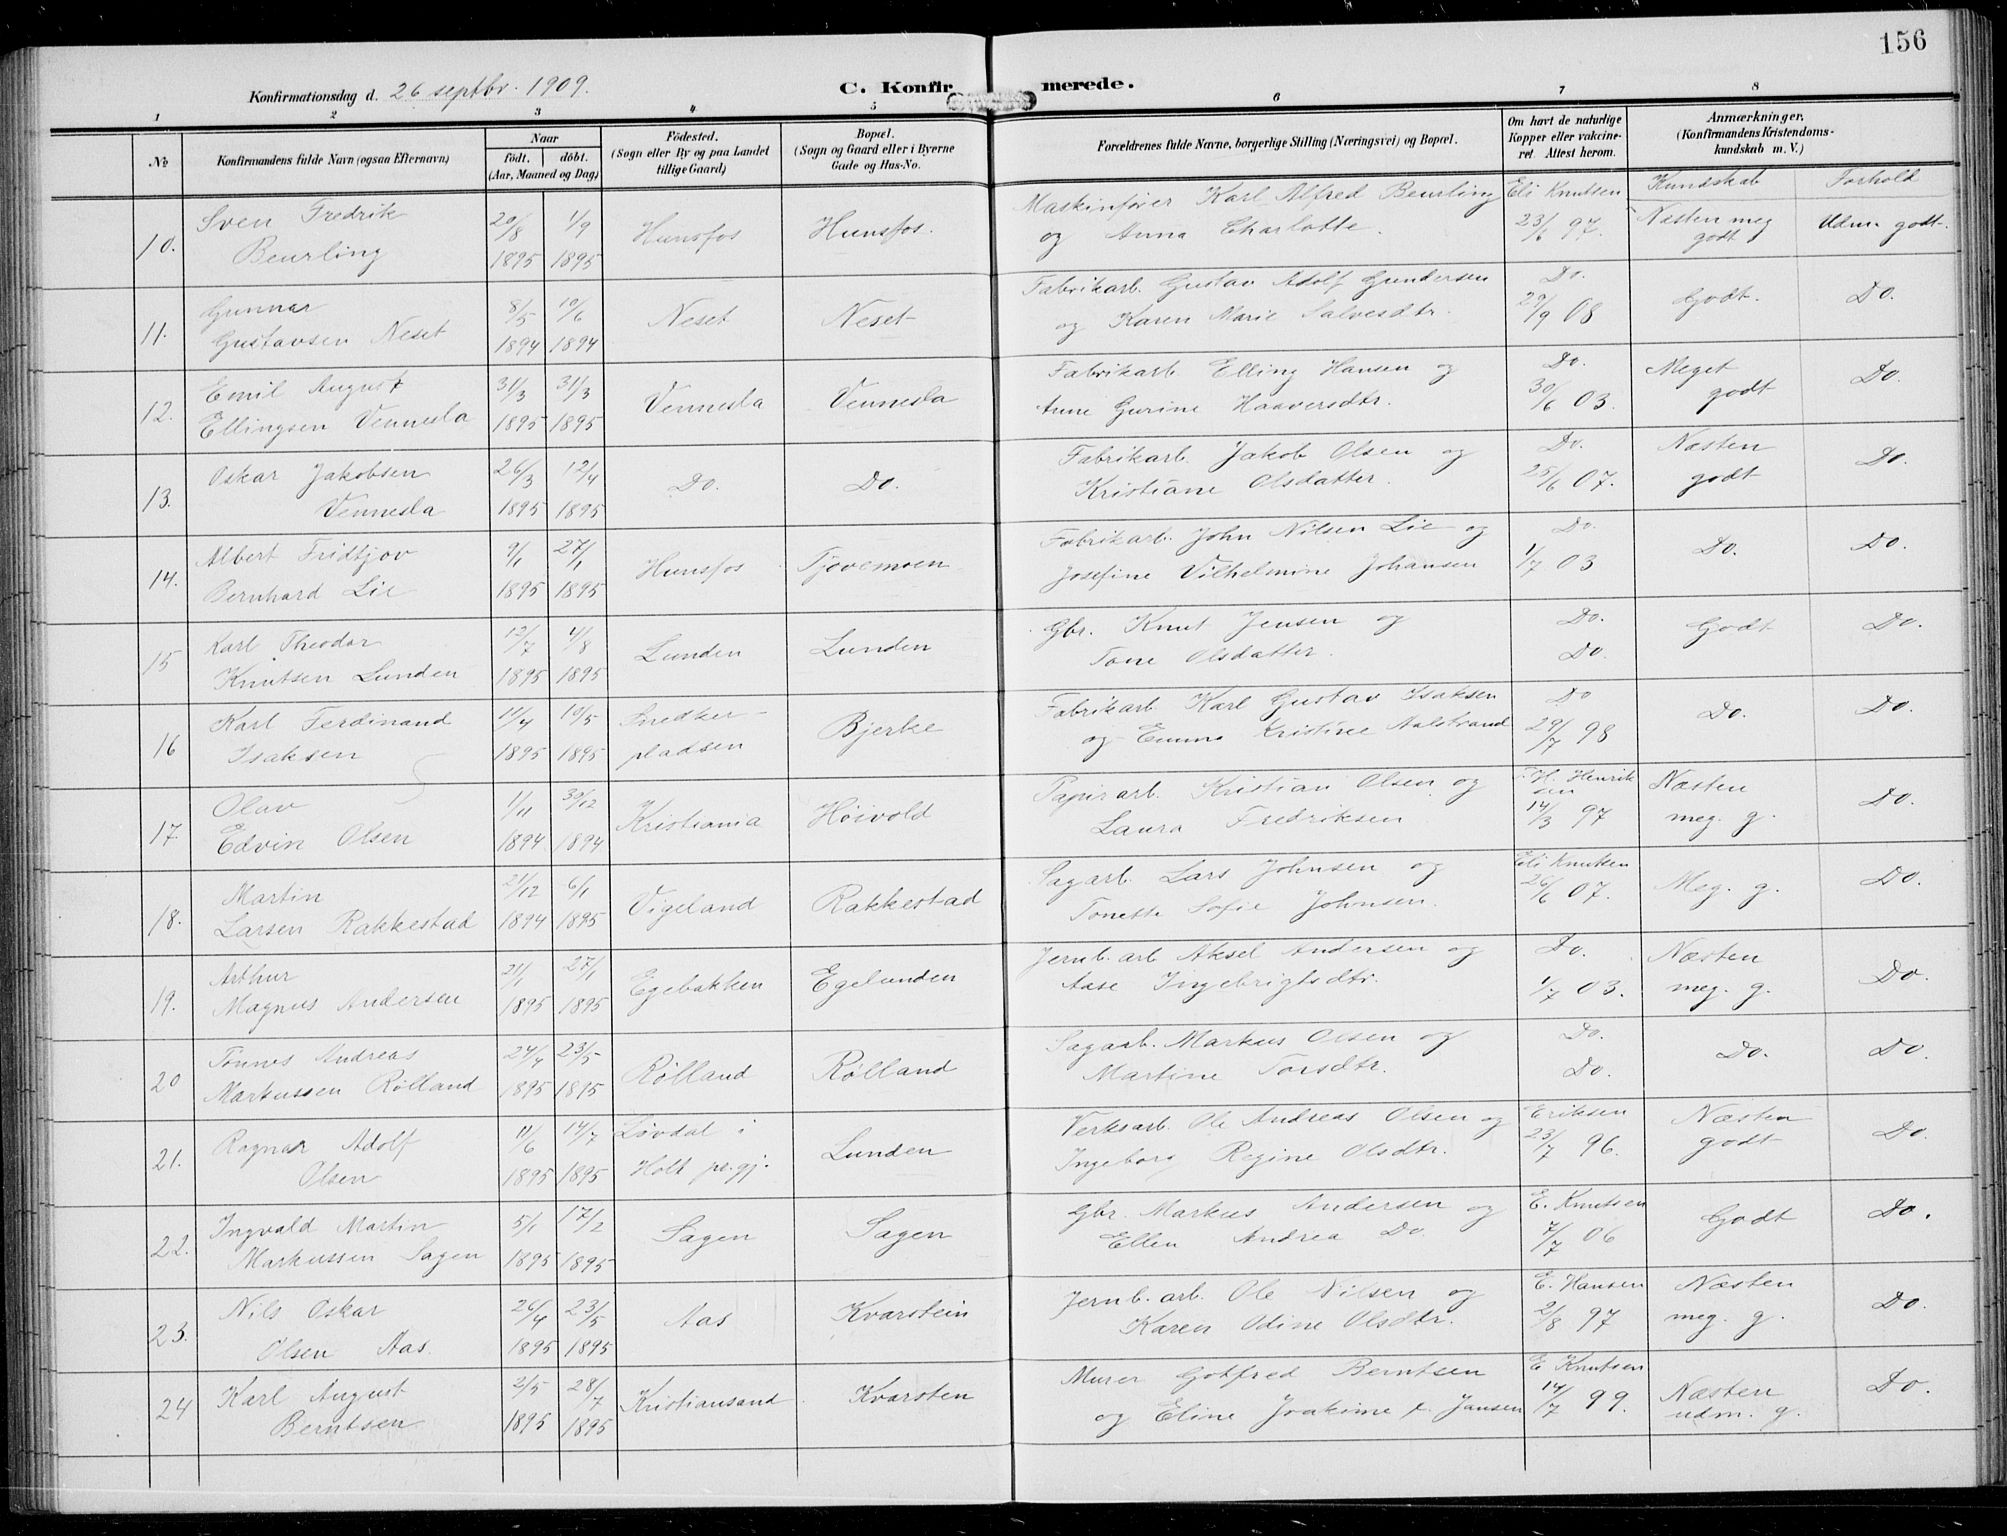 156
Konfirmationsdag d. 26 septbr. 1909.
C. Konfirmerede.
1 2 3 4 5 6 7 8
No
Konfirmandens fulde Navn (ogsaa Efternavn)
Naar
födt. döbt.
(Aar, Maaned og Dag)
Födested.
(Sogn eller By og paa Landet
tillige Gaard)
Bopæl.
(Sogn og Gaard eller i Byerne
Gade og Hus-No.
Forældrenes fulde Navne, borgerlige Stilling (Næringsvei) og Bopæl.
Om havt de naturlige
Kopper eller vakcine-
ret. Attest herom.
Anmærkninger.
(Konfirmandens Kristendoms-
kundskab m. V.)
Kundskab Forhold
10. Sven Fredrik 20/8 1/9 Hunsfos Hunsfos. Maskinfører Karl Alfred Beurling Eli Knutsen Næsten meg Udm. godt.
Beurling 1895 1895 og Anna Charlotte. 23/6 97. godt
11. Gunnar 8/5 10/6 Neset Neset Fabrikarb. Gustav Adolf Gundersen Do. Godt. Do.
Gustavsen Neset 1894 1894 og Karen Marie Salvesdtr. 29/9 08
12. Emil August 31/3 31/3 Vennesla Vennesla Fabrikarb. Elling Hansen og Do. Meget Do.
Ellingsen Vennesla 1895 1895 Anne Gurine Haaversdtr. 30/6 03. godt
13. Oskar Jakobsen 26/3 12/4 Do. Do. Fabrikarb. Jakob Olsen og Do. Næsten Do.
Vennesla 1895 1895 Kristiane Olsdatter. 25/6 07. godt
14. Albert Fridtjov 9/1 27/1 Hunsfos Tjovemoen Fabrikarb. John Nilsen Lie og Do. Do. Do.
Bernhard Lie 1895 1895 Josefine Vilhelmine Johansen 1/7 03
15 Karl Theodor 12/7 4/8 Lunden Lunden Gbr. Knut Jensen og Do. Godt Do.
Knutsen Lunden 1895 1895 Tone Olsdatter. Do.
16 Karl Ferdinand 11/4 10/5 Snedker- Bjerke Fabrikarb. Karl Gustav Isaksen Do Do. Do.
Isaksen 1895 1895 pladsen og Emma Kristine Aalstrand 29/7 98
17. Olav 1/11 30/12 Kristiania Høivold Papirarb. Kristian Olsen og H. Henrik Næsten Do.
Edvin Olsen 1894 1894 Laura Fredriksen sen 14/3 97 meg. g.
18. Martin 21/12 6/1 Vigeland Rakkestad Sagarb. Lars Johnsen og Eli Knutsen Meg. g. Do.
Larsen Rakkestad 1894 1895 Tonette Sofie Johnsen. 26/6 07.
19. Arthur 21/1 27/1 Egebakken Egelunden Jernb. arb. Aksel Andersen og Do. Næsten Do.
Magnus Andersen 1895 1895 Aase Ingebrigtsdtr. 1/7 03. meg. g.
20 Tønnes Andreas 24/4 23/5 Rølland Rølland Sagarb. Markus Olsen og Do. Do. Do.
Markussen Rølland 1895 1895 Martine Torsdtr. Do.
21. Ragnar Adolf 11/6 14/7 Løvdal i Lunden Verksarb. Ole Andreas Olsen og Eriksen Næsten Do.
Olsen 1895 1895 Holt pr.gj. Ingeborg Regine Olsdtr. 23/7 96. godt
22. Ingvald Martin 5/1 17/2 Sagen Sagen Gbr. Markus Andersen og E. Knutsen Godt Do.
Markussen Sagen 1895 1895 Ellen Andrea Do 7/7 06
23. Nils Oskar 26/4 23/5 Aas Kvarstein Jernb. arb. Ole Nilsen og E. Hansen Næsten Do.
Olsen Aas 1895 1895 Karen Odine Olsdtr. 2/8 97 meg. g.
24 Karl August 2/5 28/7 Kristiansand Kvarsten Murer Gotfred Berntsen E Knutsen Næsten Do.
Berntsen 1895 1895 og Eline Joakime f. Jansen 14/7 99. udm. g.